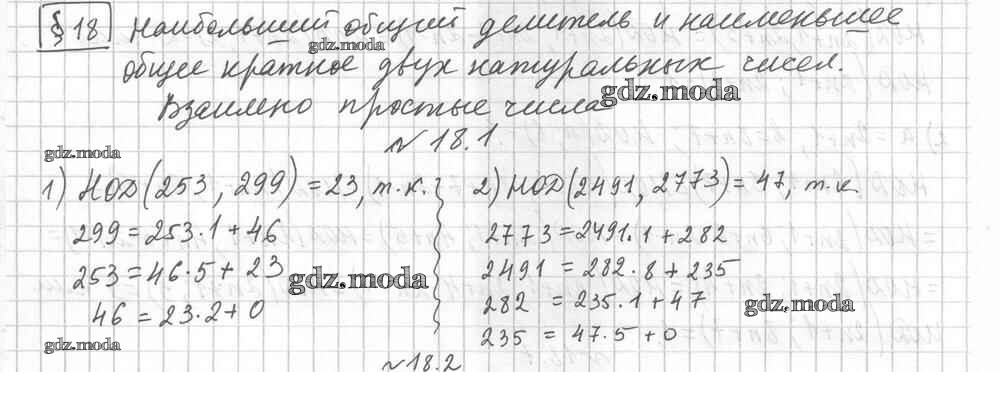 § 18 Наибольший общий делитель и наименьшее
gdz.moda
общее кратное двух натуральных чисел.
Взаимно простые числа
gdz.moda
№ 18.1
gdz.moda
1) НОД(253, 299) = 23, т.к.
299 = 253·1 + 46
253 = 46·5 + 23
gdz.moda
46 = 23·2 + 0
gdz.moda
2) НОД(2491, 2773) = 47, т.к.
2773 = 2491·1 + 282
2491 = 282·8 + 235
282 = 235·1 + 47
gdz.moda
235 = 47·5 + 0
№ 18.2